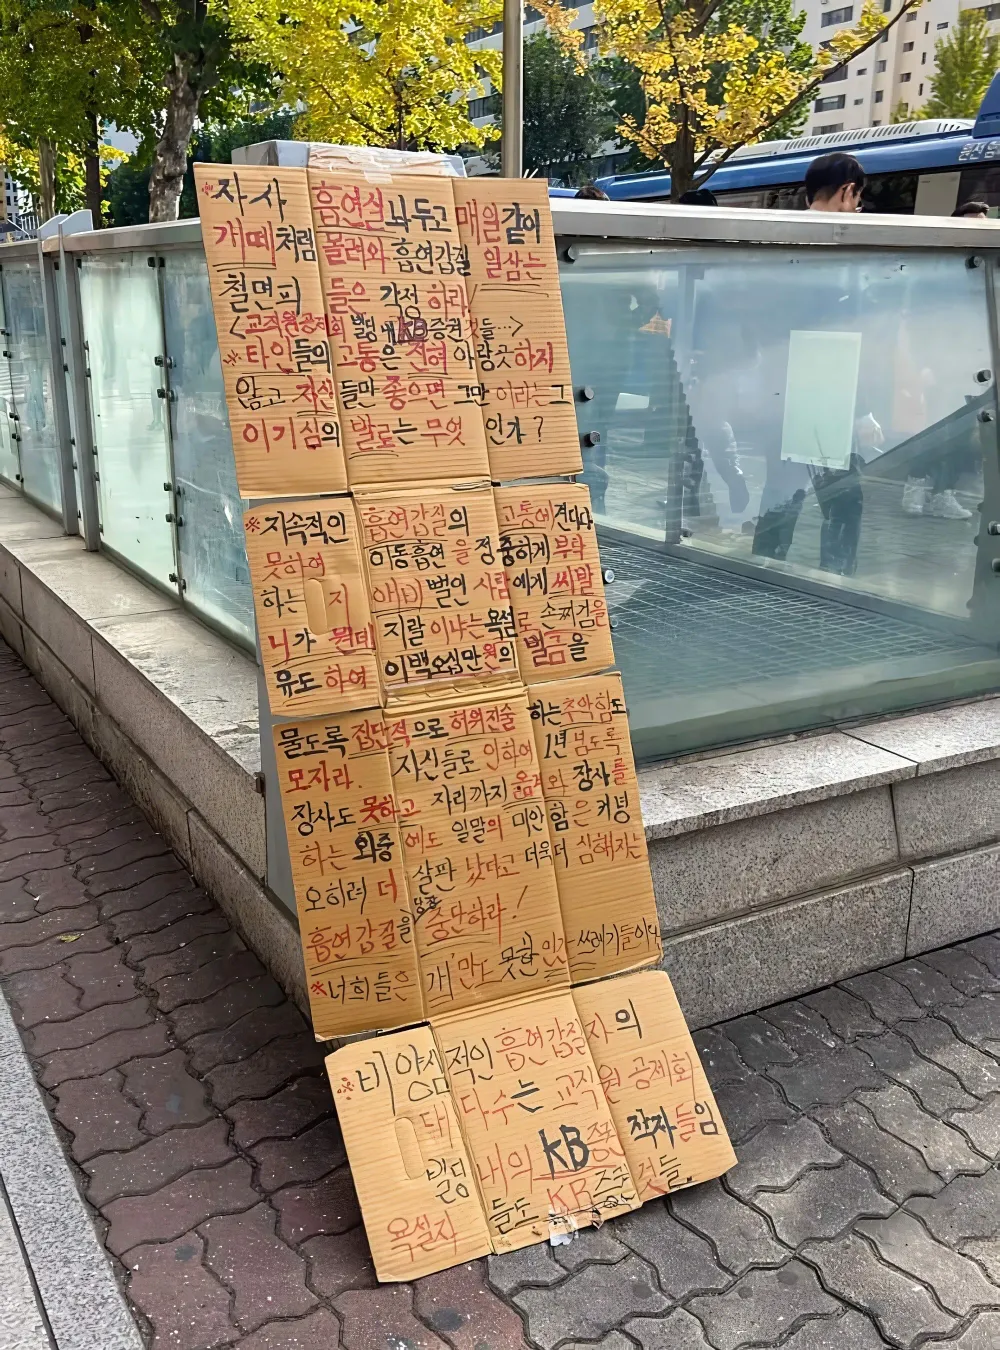 ※자사 흡연실 놔두고 매일같이
개떼처럼 몰려와 흡연갑질 일삼는
철면피들은 각성하라!
<교직원공제회 빌딩내 KB증권 것들…>
※타인들의 고통은 전혀 아랑곳하지
않고 자신들만 좋으면 그만이라는 그
이기심의 발로는 무엇인가?
※지속적인 흡연갑질의 고통에 견디다
못하여 이동흡연을 정중하게 부탁
하는 지 애비뻘인 사람에게 씨발
니가 뭔데 지랄이냐는 욕설로 손찌검을
유도하여 이백오십만원의 벌금을
물도록 집단적으로 허위진술하는 추악함도
모자라. 자신들로 인하여 1년 넘도록
장사도 못하고 자리까지 옮겨와 장사를
하는 와중에도 일말의 미안함은 커녕
오히려 더 살판났다고 더욱더 심해지는
흡연갑질을 당장 중단하라!
※너희들은 개만도 못한 인간쓰레기들이다
※비양심적인 흡연갑질자의
대다수는 교직원공제회
빌딩내의 KB증권 작자들임
욕설자들도 KB증권 것들.